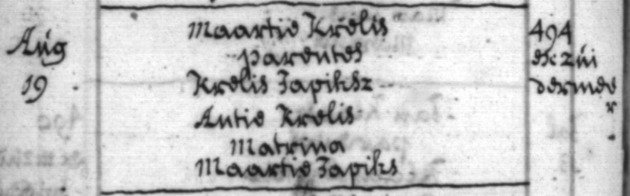 Aug
19
Maartie Krelis
parentes
Krelis Japiksz
Antie Krelis
Matrina
Maartie Japiks
494